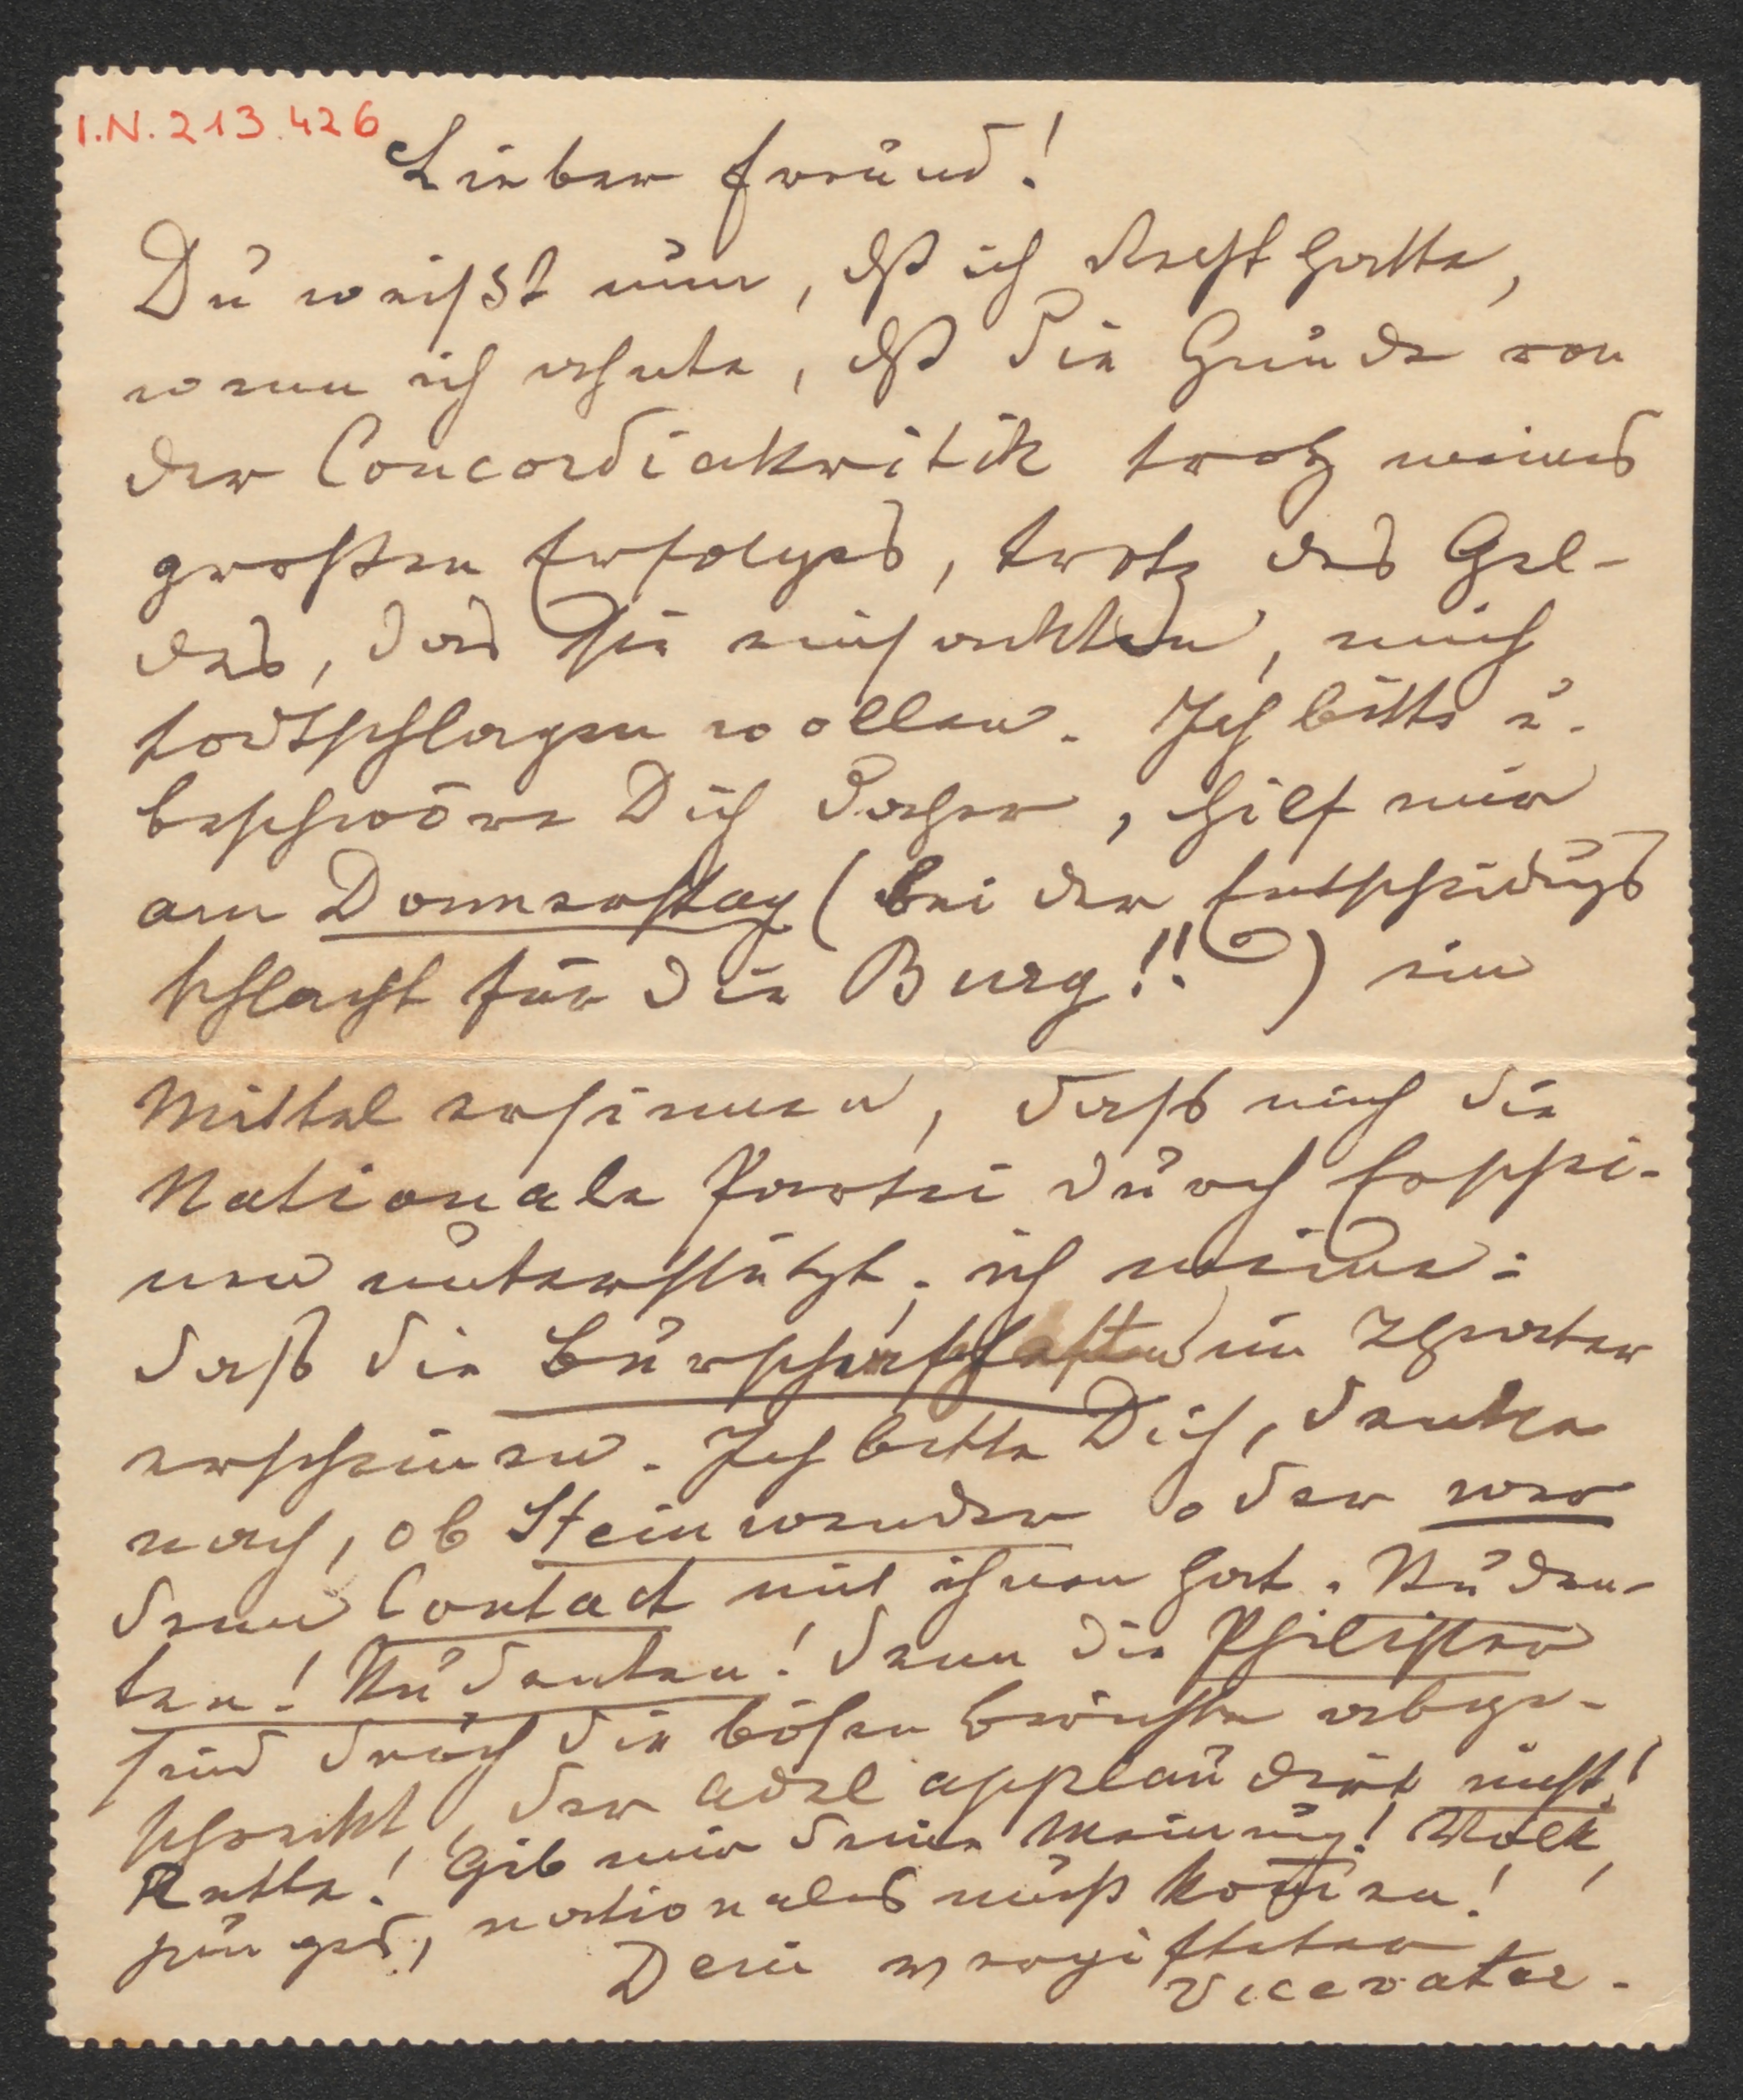 I.N. 213.426
Lieber Freund!
Du weißt nun, dß ich Recht hatte,
wenn ich ahnte, dß die Hunde von
der Concordiakritik trotz meines
großen Erfolges, trotz des Gel-
des, das sie einsackten, mich
todtschlagen wollen. Ich bitte u.
beschwöre Dich daher, hilf mir
am Donnerstag (bei der Entscheidungs
schlacht für die Burg!!) ein
Mittel ersinnen, daß mich die
Nationale Partei durch Erschei-
nen unterstützt. ich meine:
daß die Burschenschaften im Theater
erscheinen. Ich bitte Dich, denke
nach, ob Steinwender oder wer
denn Contact mit ihnen hat. Studen-
ten! Studenten! denn die Philister
sind durch die bösen Berichte abge-
schreckt, der Adel applaudirt nicht!
Rette! Gib mir Deine Meinung! Volk,
junges, nationales muß kommen!
Dein vergifteter
Vicevater.